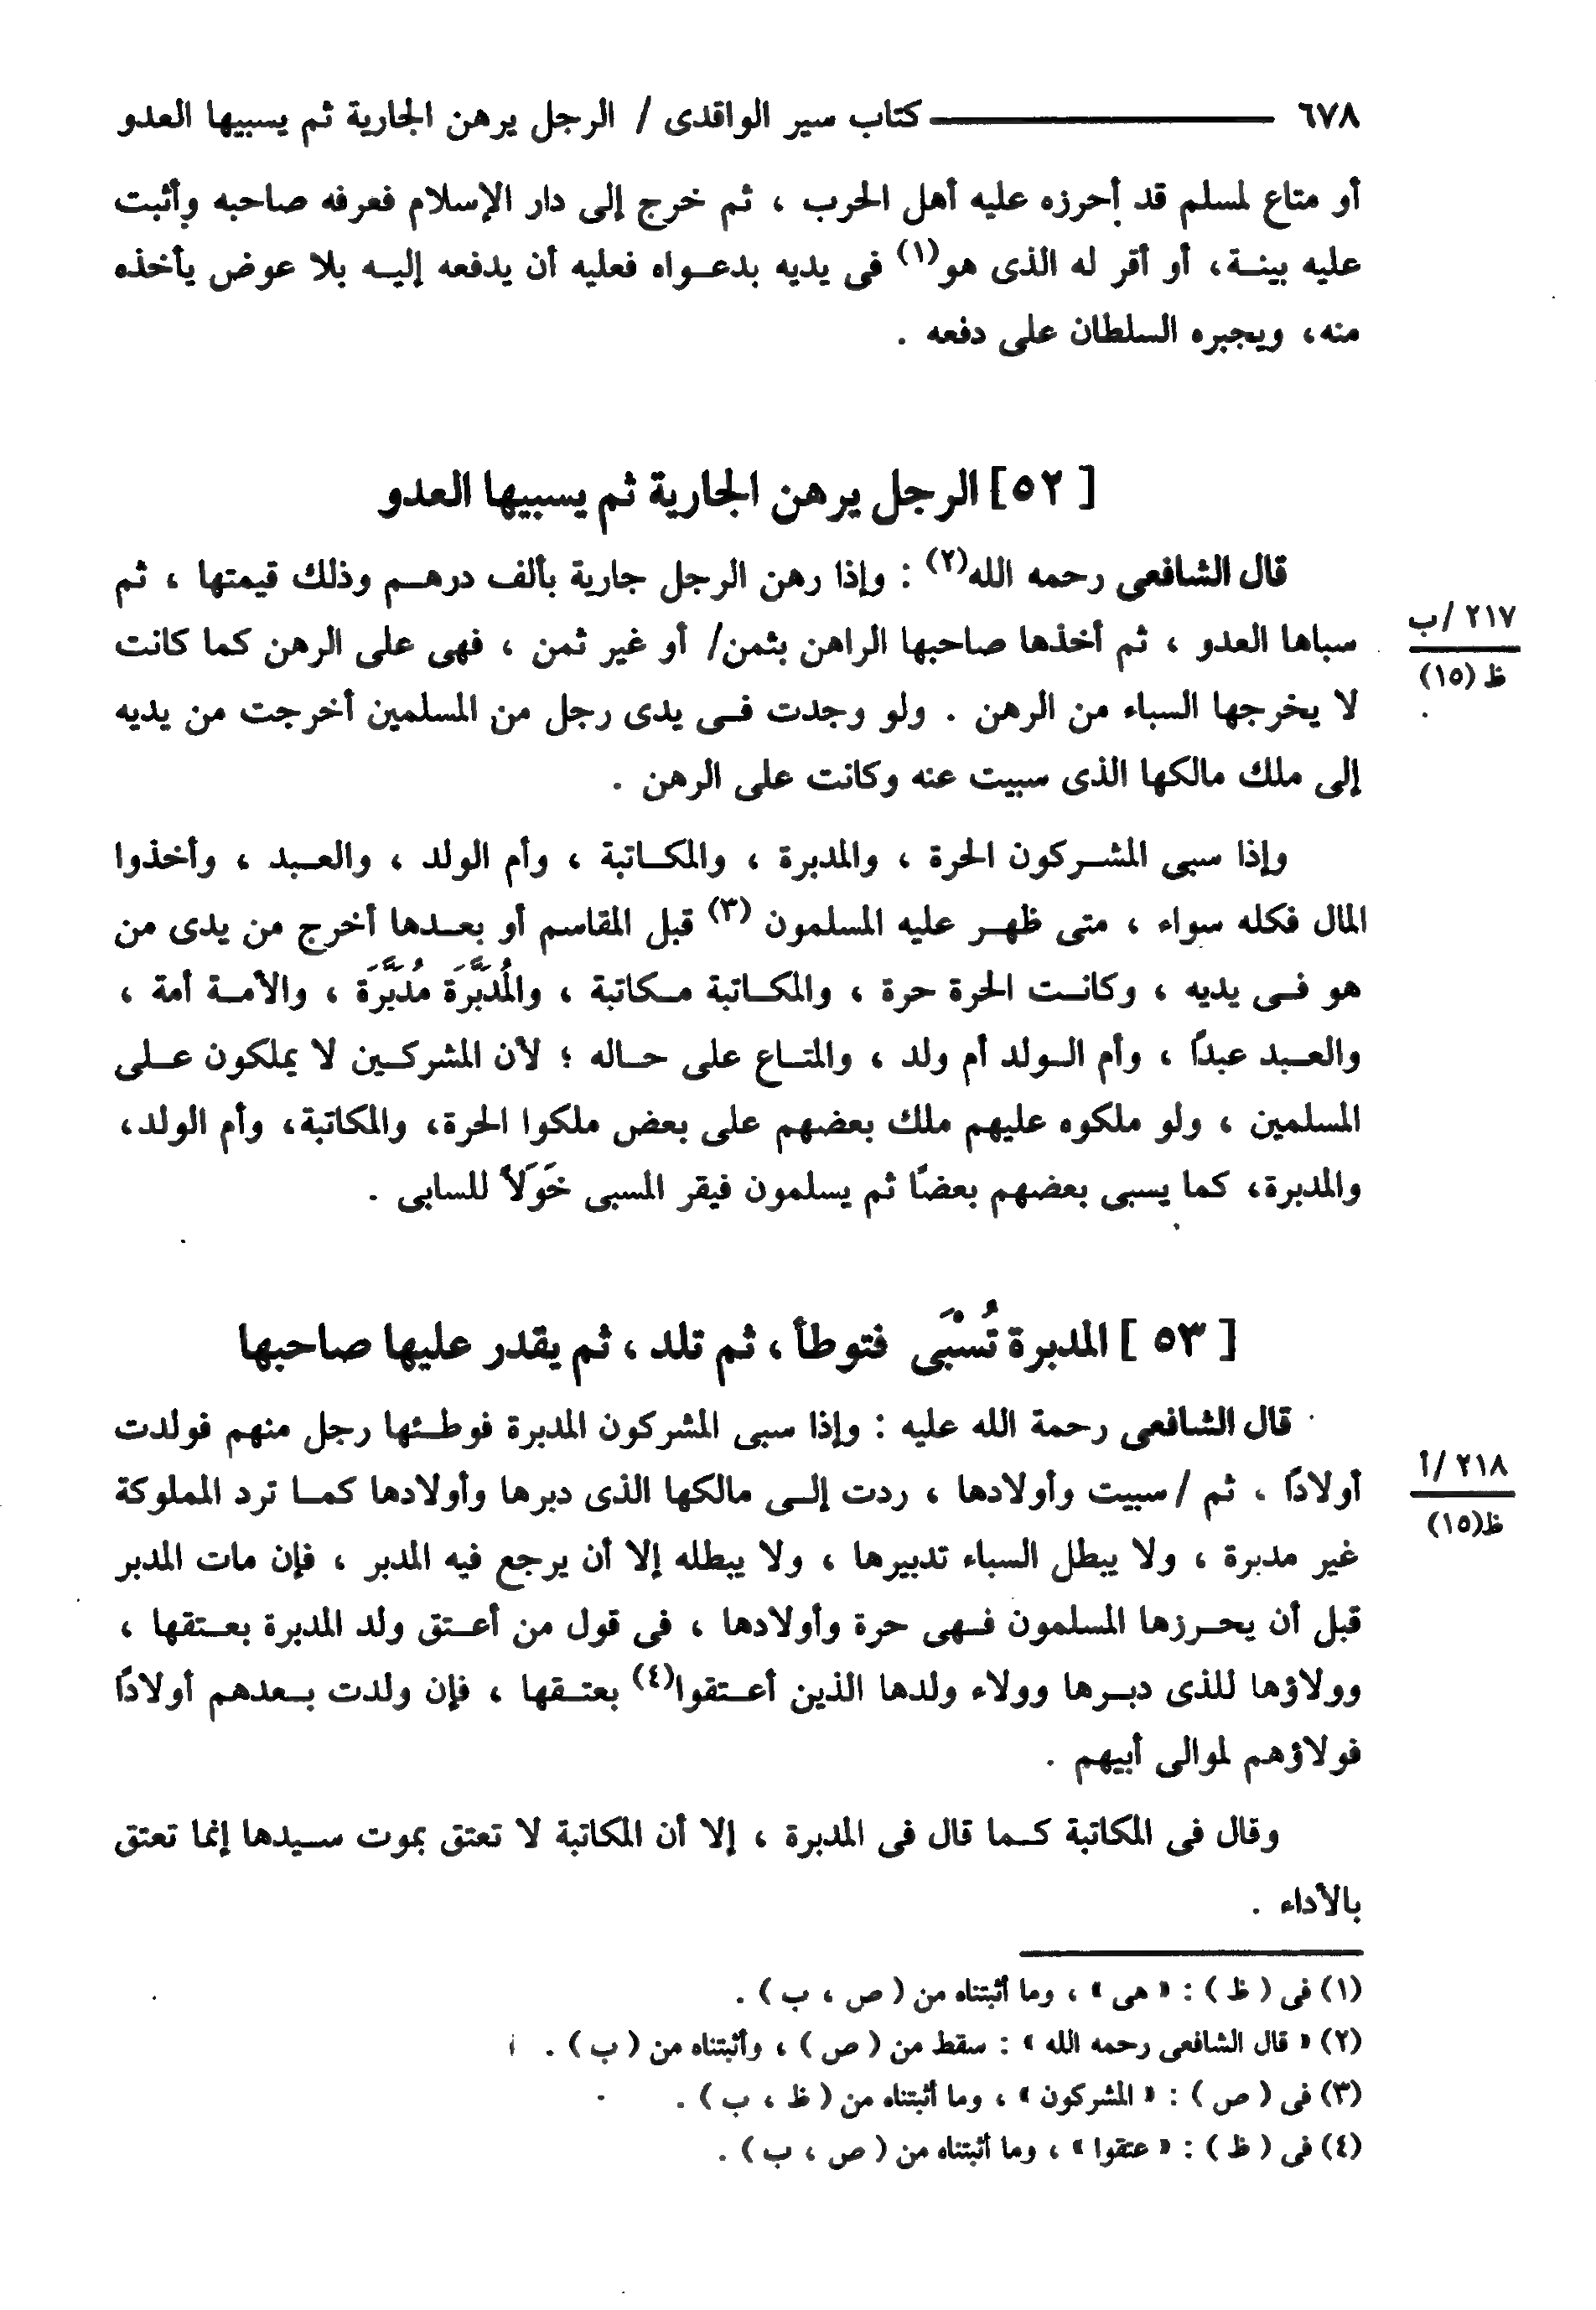 ٦٧٨ كتاب سير الواقدى / الرجل يرهن الجارية ثم يسبيها العدو
أو متاع لمسلم قد أحرزه عليه أهل الحرب ، ثم خرج إلى دار الإسلام فعرفه صاحبه وأثبت
عليه بينة، أو أقر له الذى هو(١) فى يديه بدعواه فعليه أن يدفعه إليه بلا عوض يأخذه
منه، ويجبره السلطان على دفعه .
[ ٥٢ ] الرجل يرهن الجارية ثم يسبيها العدو
قال الشافعى رحمه الله(٢) : وإذا رهن الرجل جارية بألف درهم وذلك قيمتها ، ثم
٢١٧ /ب
سباها العدو ، ثم أخذها صاحبها الراهن بثمن/ أو غير ثمن ، فهى على الرهن كما كانت
ظ (١٥)
لا يخرجها السباء من الرهن . ولو وجدت فى يدى رجل من المسلمين أخرجت من يديه
إلى ملك مالكها الذى سبيت عنه وكانت على الرهن .
وإذا سبى المشركون الحرة ، والمدبرة ، والمكاتبة ، وأم الولد ، والعبد ، وأخذوا
المال فكله سواء ، متى ظهر عليه المسلمون (٣) قبل المقاسم أو بعدها أخرج من يدى من
هو فى يديه ، وكانت الحرة حرة ، والمكاتبة مكاتبة ، والمُدَبَّرَة مُدَبَّرَة ، والأمة أمة ،
والعبد عبدًا ، وأم الولد أم ولد ، والمتاع على حاله ؛ لأن المشركين لا يملكون على
المسلمين ، ولو ملكوه عليهم ملك بعضهم على بعض ملكوا الحرة، والمكاتبة، وأم الولد،
والمدبرة، كما يسبى بعضهم بعضًا ثم يسلمون فيقر المسبى خَوَلاً للسابى .
[ ٥٣ ] المدبرة تُسْبَى فتوطأ ، ثم تلد ، ثم يقدر عليها صاحبها
قال الشافعى رحمة الله عليه : وإذا سبى المشركون المدبرة فوطئها رجل منهم فولدت
٢١٨ /أ
أولادًا ، ثم /سبيت وأولادها ، ردت إلى مالكها الذى دبرها وأولادها كما ترد المملوكة
ظ(١٥)
غير مدبرة ، ولا يبطل السباء تدبيرها ، ولا يبطله إلا أن يرجع فيه المدبر ، فإن مات المدبر
قبل أن يحرزها المسلمون فهى حرة وأولادها ، فى قول من أعتق ولد المدبرة بعتقها ،
وولاؤها للذى دبرها وولاء ولدها الذين أعتقوا(٤) بعتقها ، فإن ولدت بعدهم أولادًا
فولاؤهم لموالى أبيهم .
وقال فى المكاتبة كما قال فى المدبرة ، إلا أن المكاتبة لا تعتق بموت سيدها إنما تعتق
بالأداء .
(١) فى ( ظ ) : « هى » ، وما أثبتناه من ( ص ، ب ) .
(٢) « قال الشافعى رحمه الله » : سقط من ( ص ) ، وأثبتناه من ( ب ) .
(٣) فى ( ص ) : « المشركون » ، وما أثبتناه من ( ظ ، ب ) .
(٤) فى ( ظ ) : « عتقوا » ، وما أثبتناه من ( ص ، ب ) .